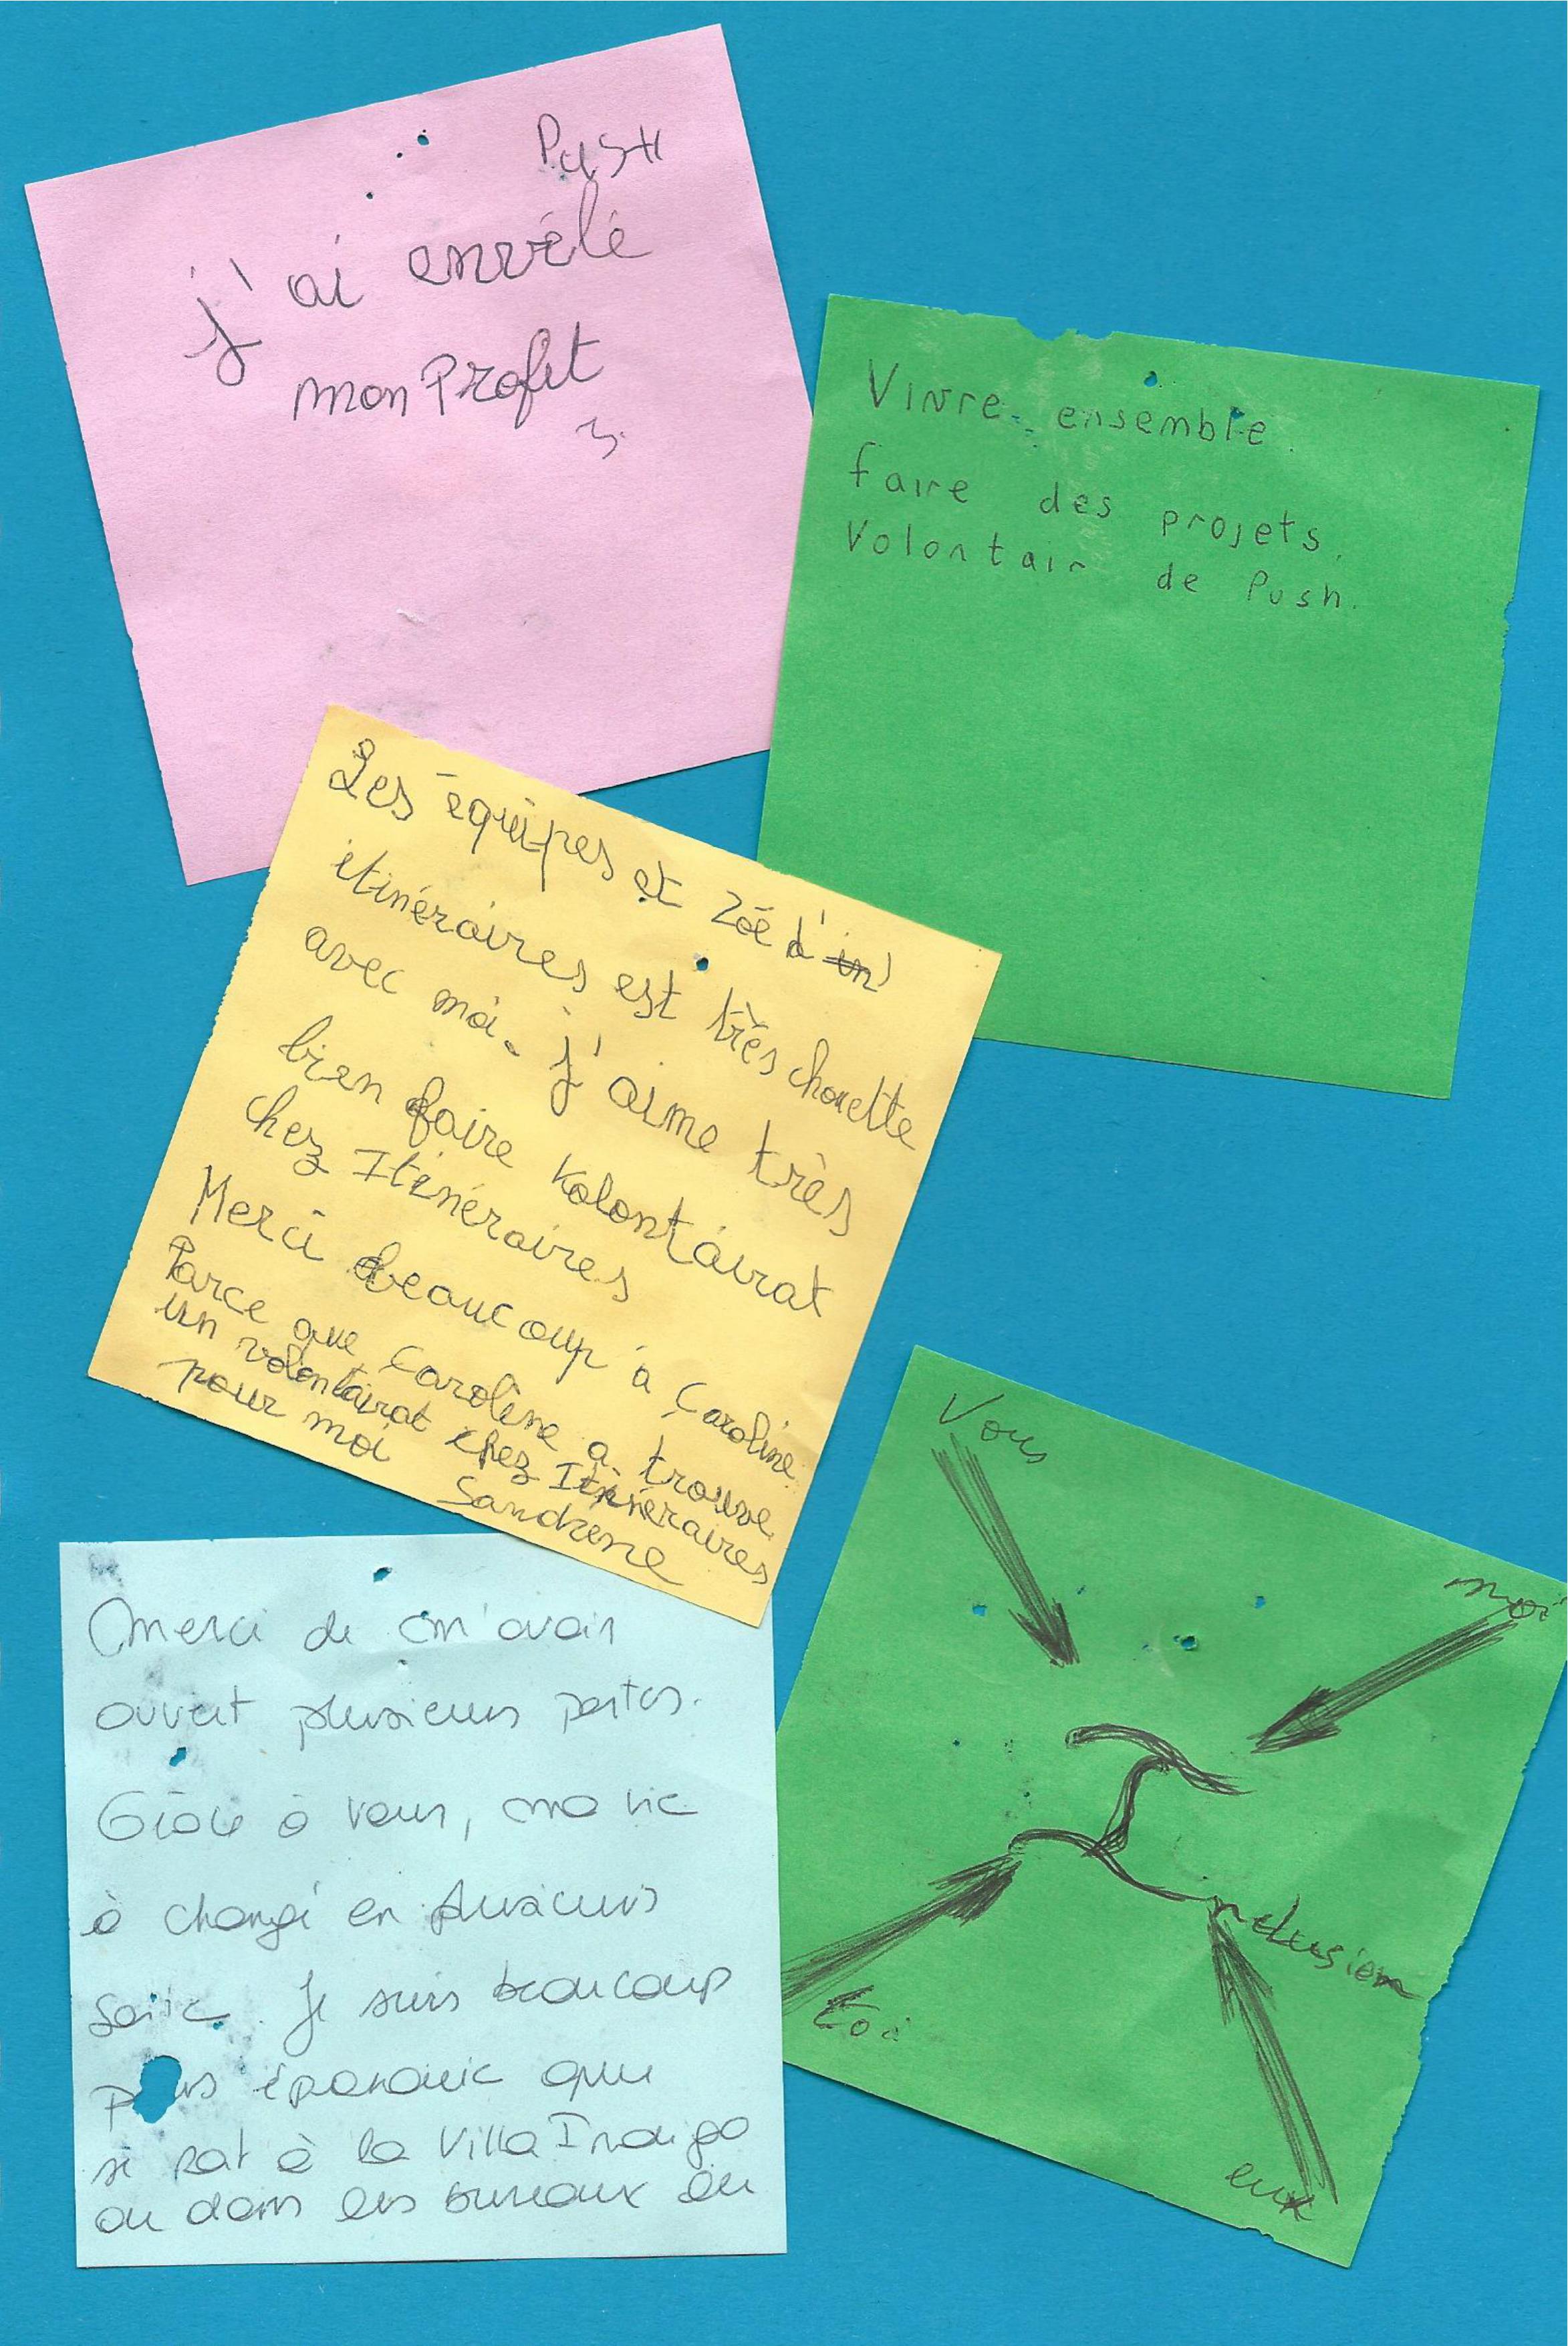 Push
j'ai envélé
mon Profit
Vivre ensemble.
faire des projets.
Volontair de Push.
Les équipes et Zoé d'in
itinéraires est très chouette
avec moi. j'aime très
bien faire Volontairat
chez Itinéraires
Merci beaucoup à Caroline
Parce que Caroline a trouve
un volontairat chez Itinéraires
pour moi
Sandrine
Vous
moi
Inclusion
toi
eux
Merci de m'avoir
ouvert plusieurs portes.
Grâce à vous, ma vie
à changé en plusieurs
Je suis beaucoup
plus épanouie que
se soit à la Villa Indigo
ou dans les bureaux ou